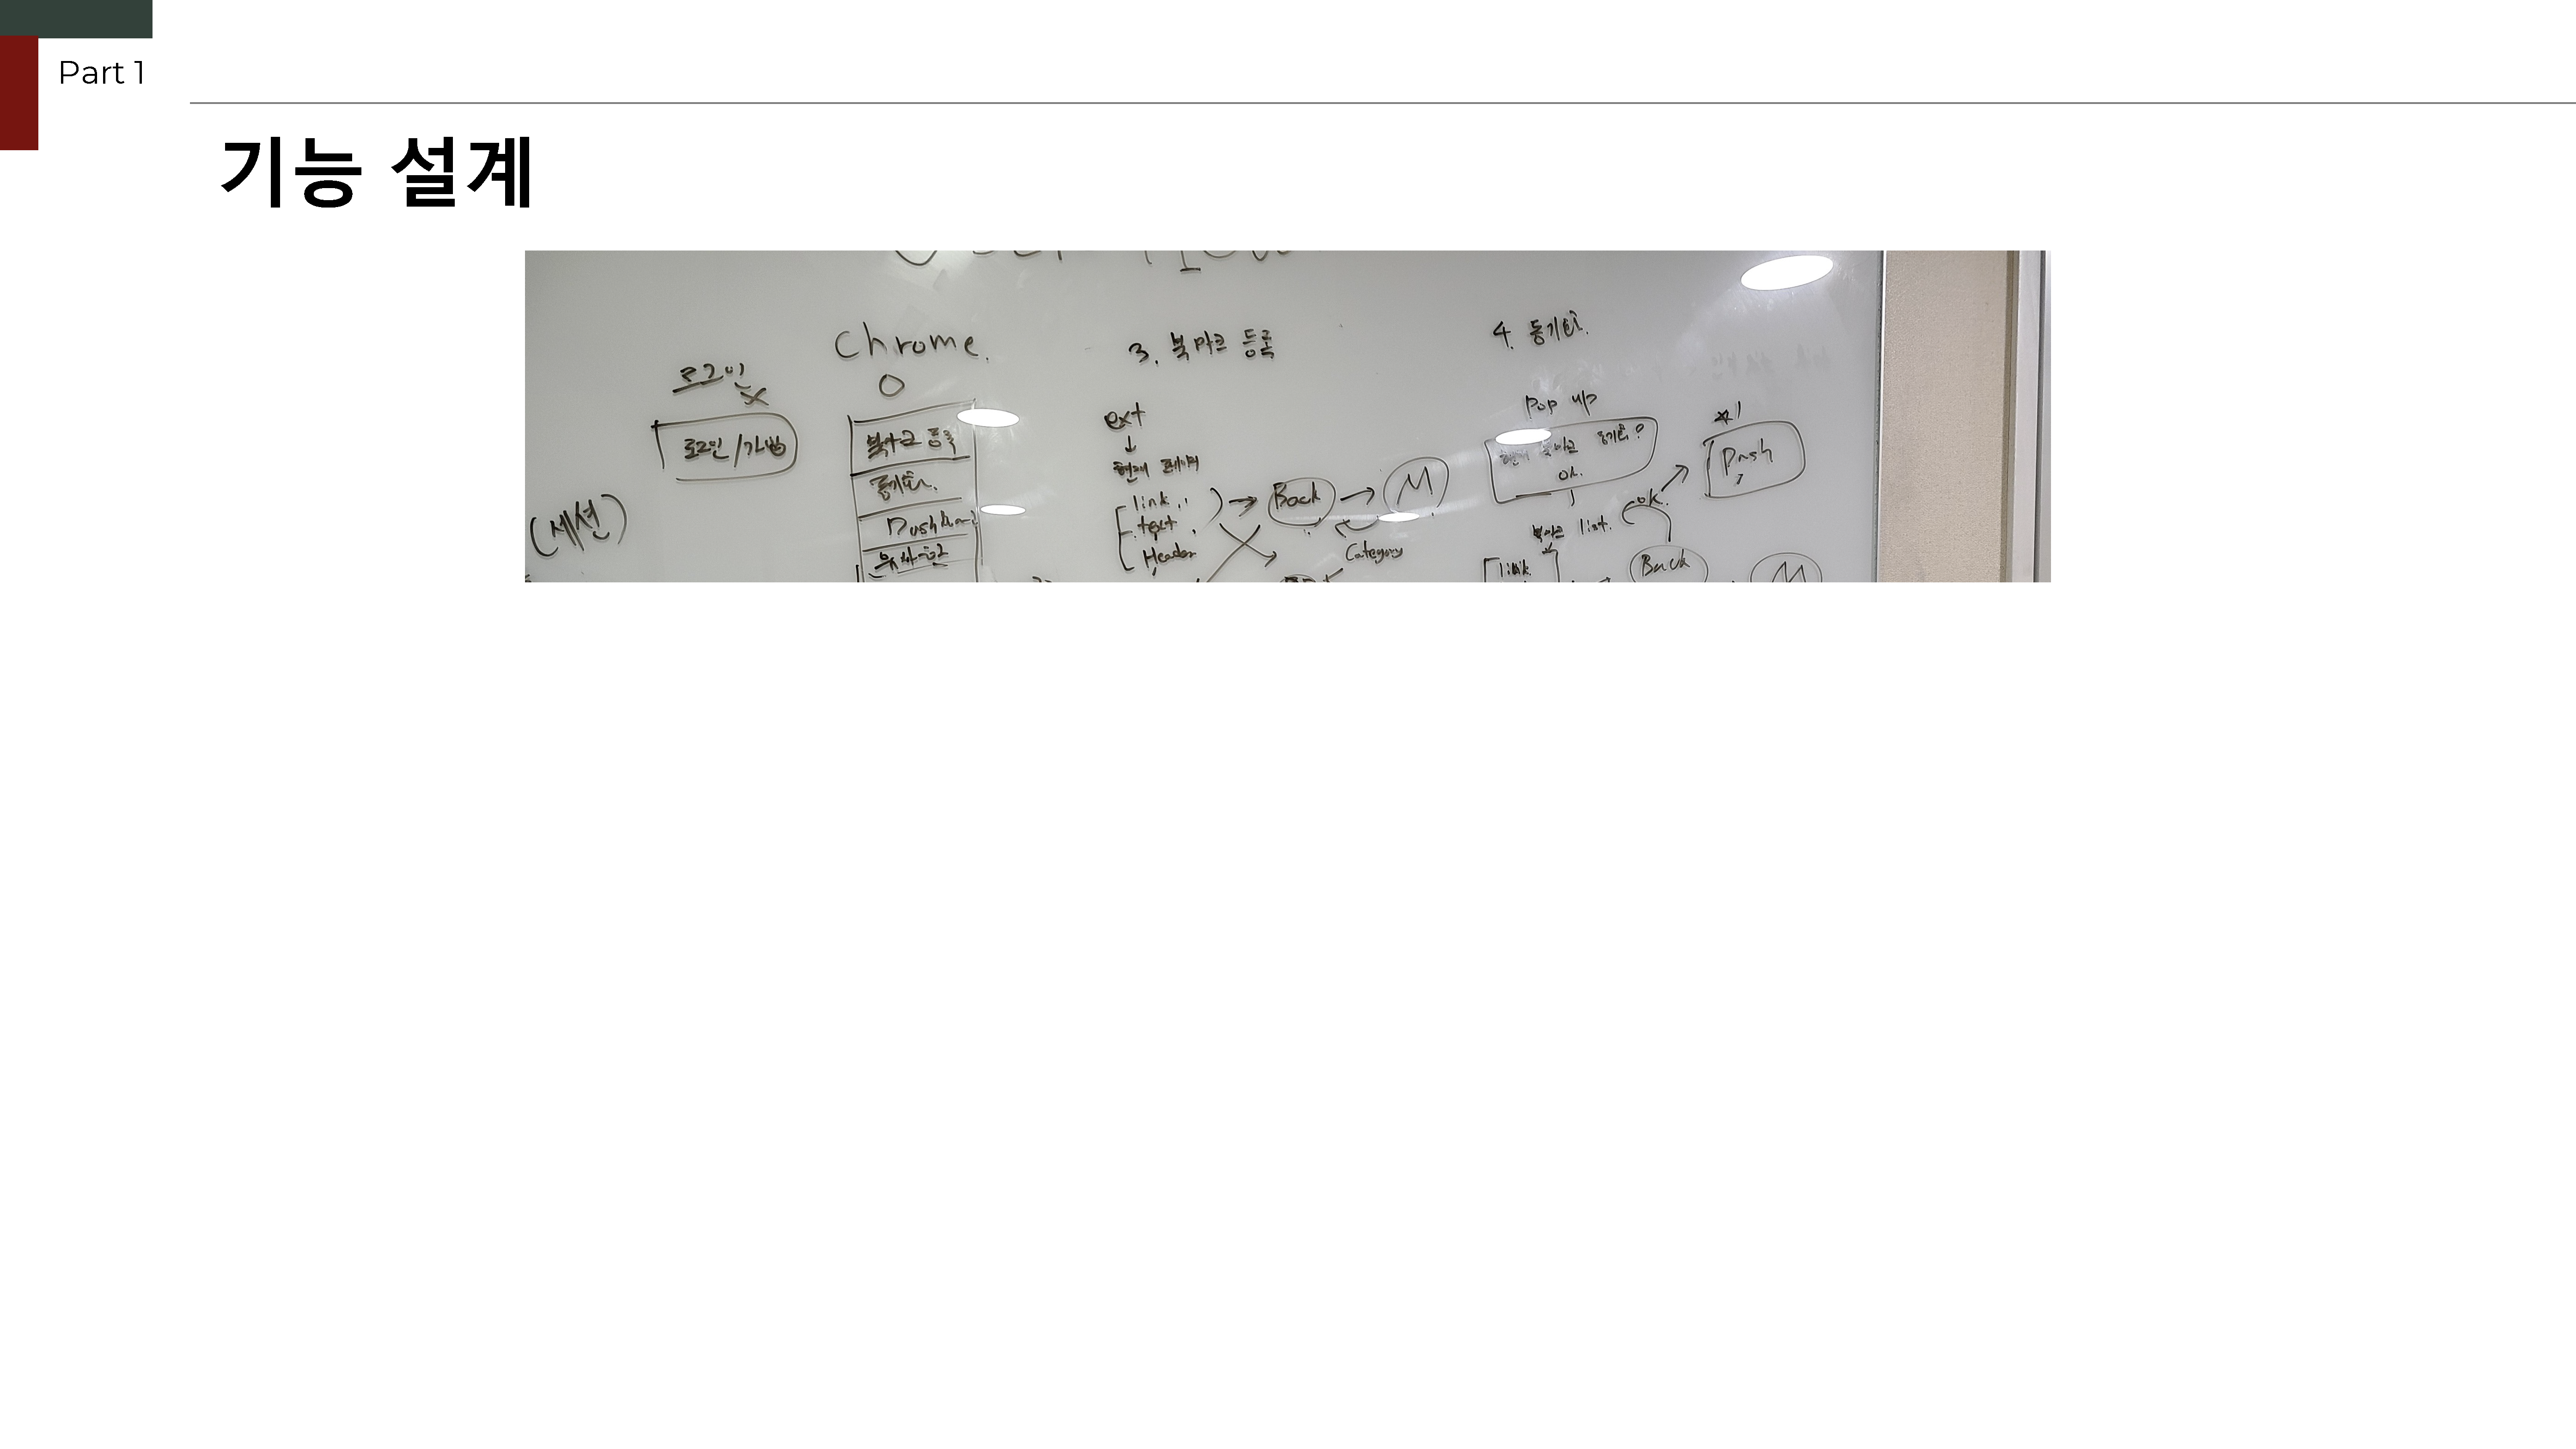 Part 1
기능 설계
로그인
로그인/가입
(세션)
Chrome.
북마크 등록
동기화.
3. 북마크 등록
ext
현재 페이지
link
text
Header
Back
M
Category
4. 동기화.
Pop up
현재 북마크 동기화?
OK.
북마크 list.
link
ok.
Back
M